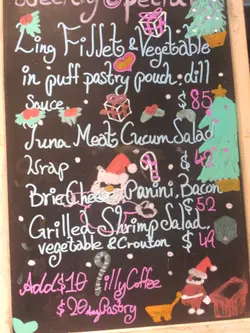 Weekly Special
Ling Fillet & Vegetable
in puff pastry pouch, dill
Sauce $85
Tuna Meat Cucum Salad
Wrap $42
Brie Cheese Panini, Bacon
$52
Grilled Shrimp Salad,
vegetable & Crouton $49
Add $10 illy Coffee
$20 any Pastry